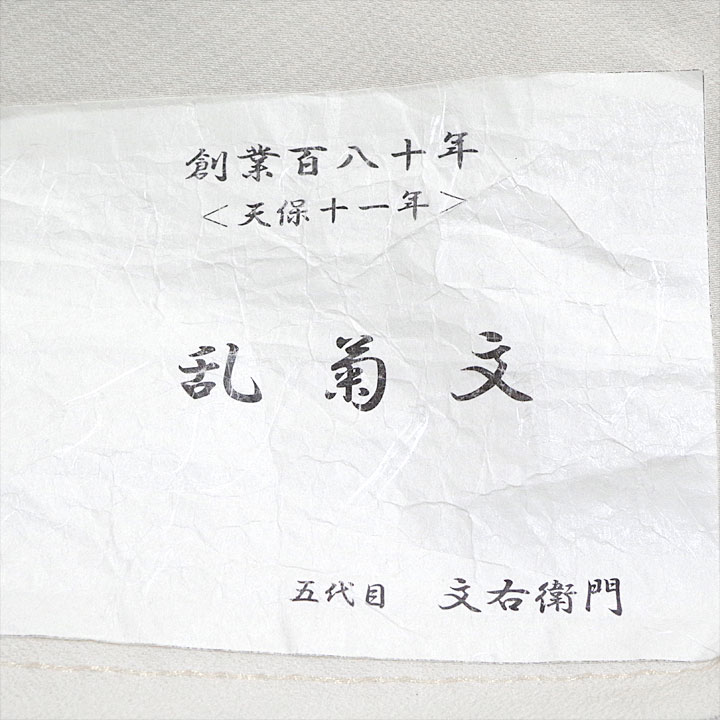 創業百八十年
＜天保十一年＞
乱菊文
五代目 文右衛門